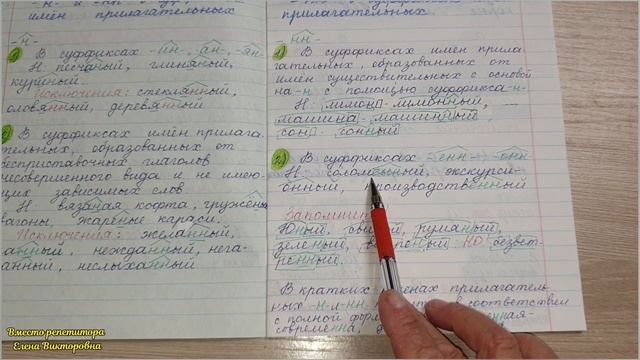 имён прилагательных
-Н-
1) В суффиксах -ин-, -ан-, -ян-
Н: песчаный, глиняный,
куриный.
Исключения: стеклянный,
оловянный, деревянный
2) В суффиксах имён прилага-
тельных, образованных от
бесприставочных глаголов
несовершенного вида и не имею-
щих зависимых слов
Н: вязаная кофта, гружёные
вагоны, жареные караси.
Исключения: желанный,
нежданный, нега-
данный, неслыханный
прилагательных
-НН-
1) В суффиксах имён прила-
гательных, образованных от
имён существительных с основой
на -н- с помощью суффикса -н-
Н: лимон- лимонный,
машина - машинный,
сон - сонный
2) В суффиксах -енн- -онн-
Н: соломенный, экскурси-
онный, производственный
Запомнить
Юный, румяный,
зелёный, НО безвет-
ренный.
В кратких прилагатель-
ных -н- и -нн- в соответствии
с полной
современна,
Вместо репетитора
Елена Викторовна